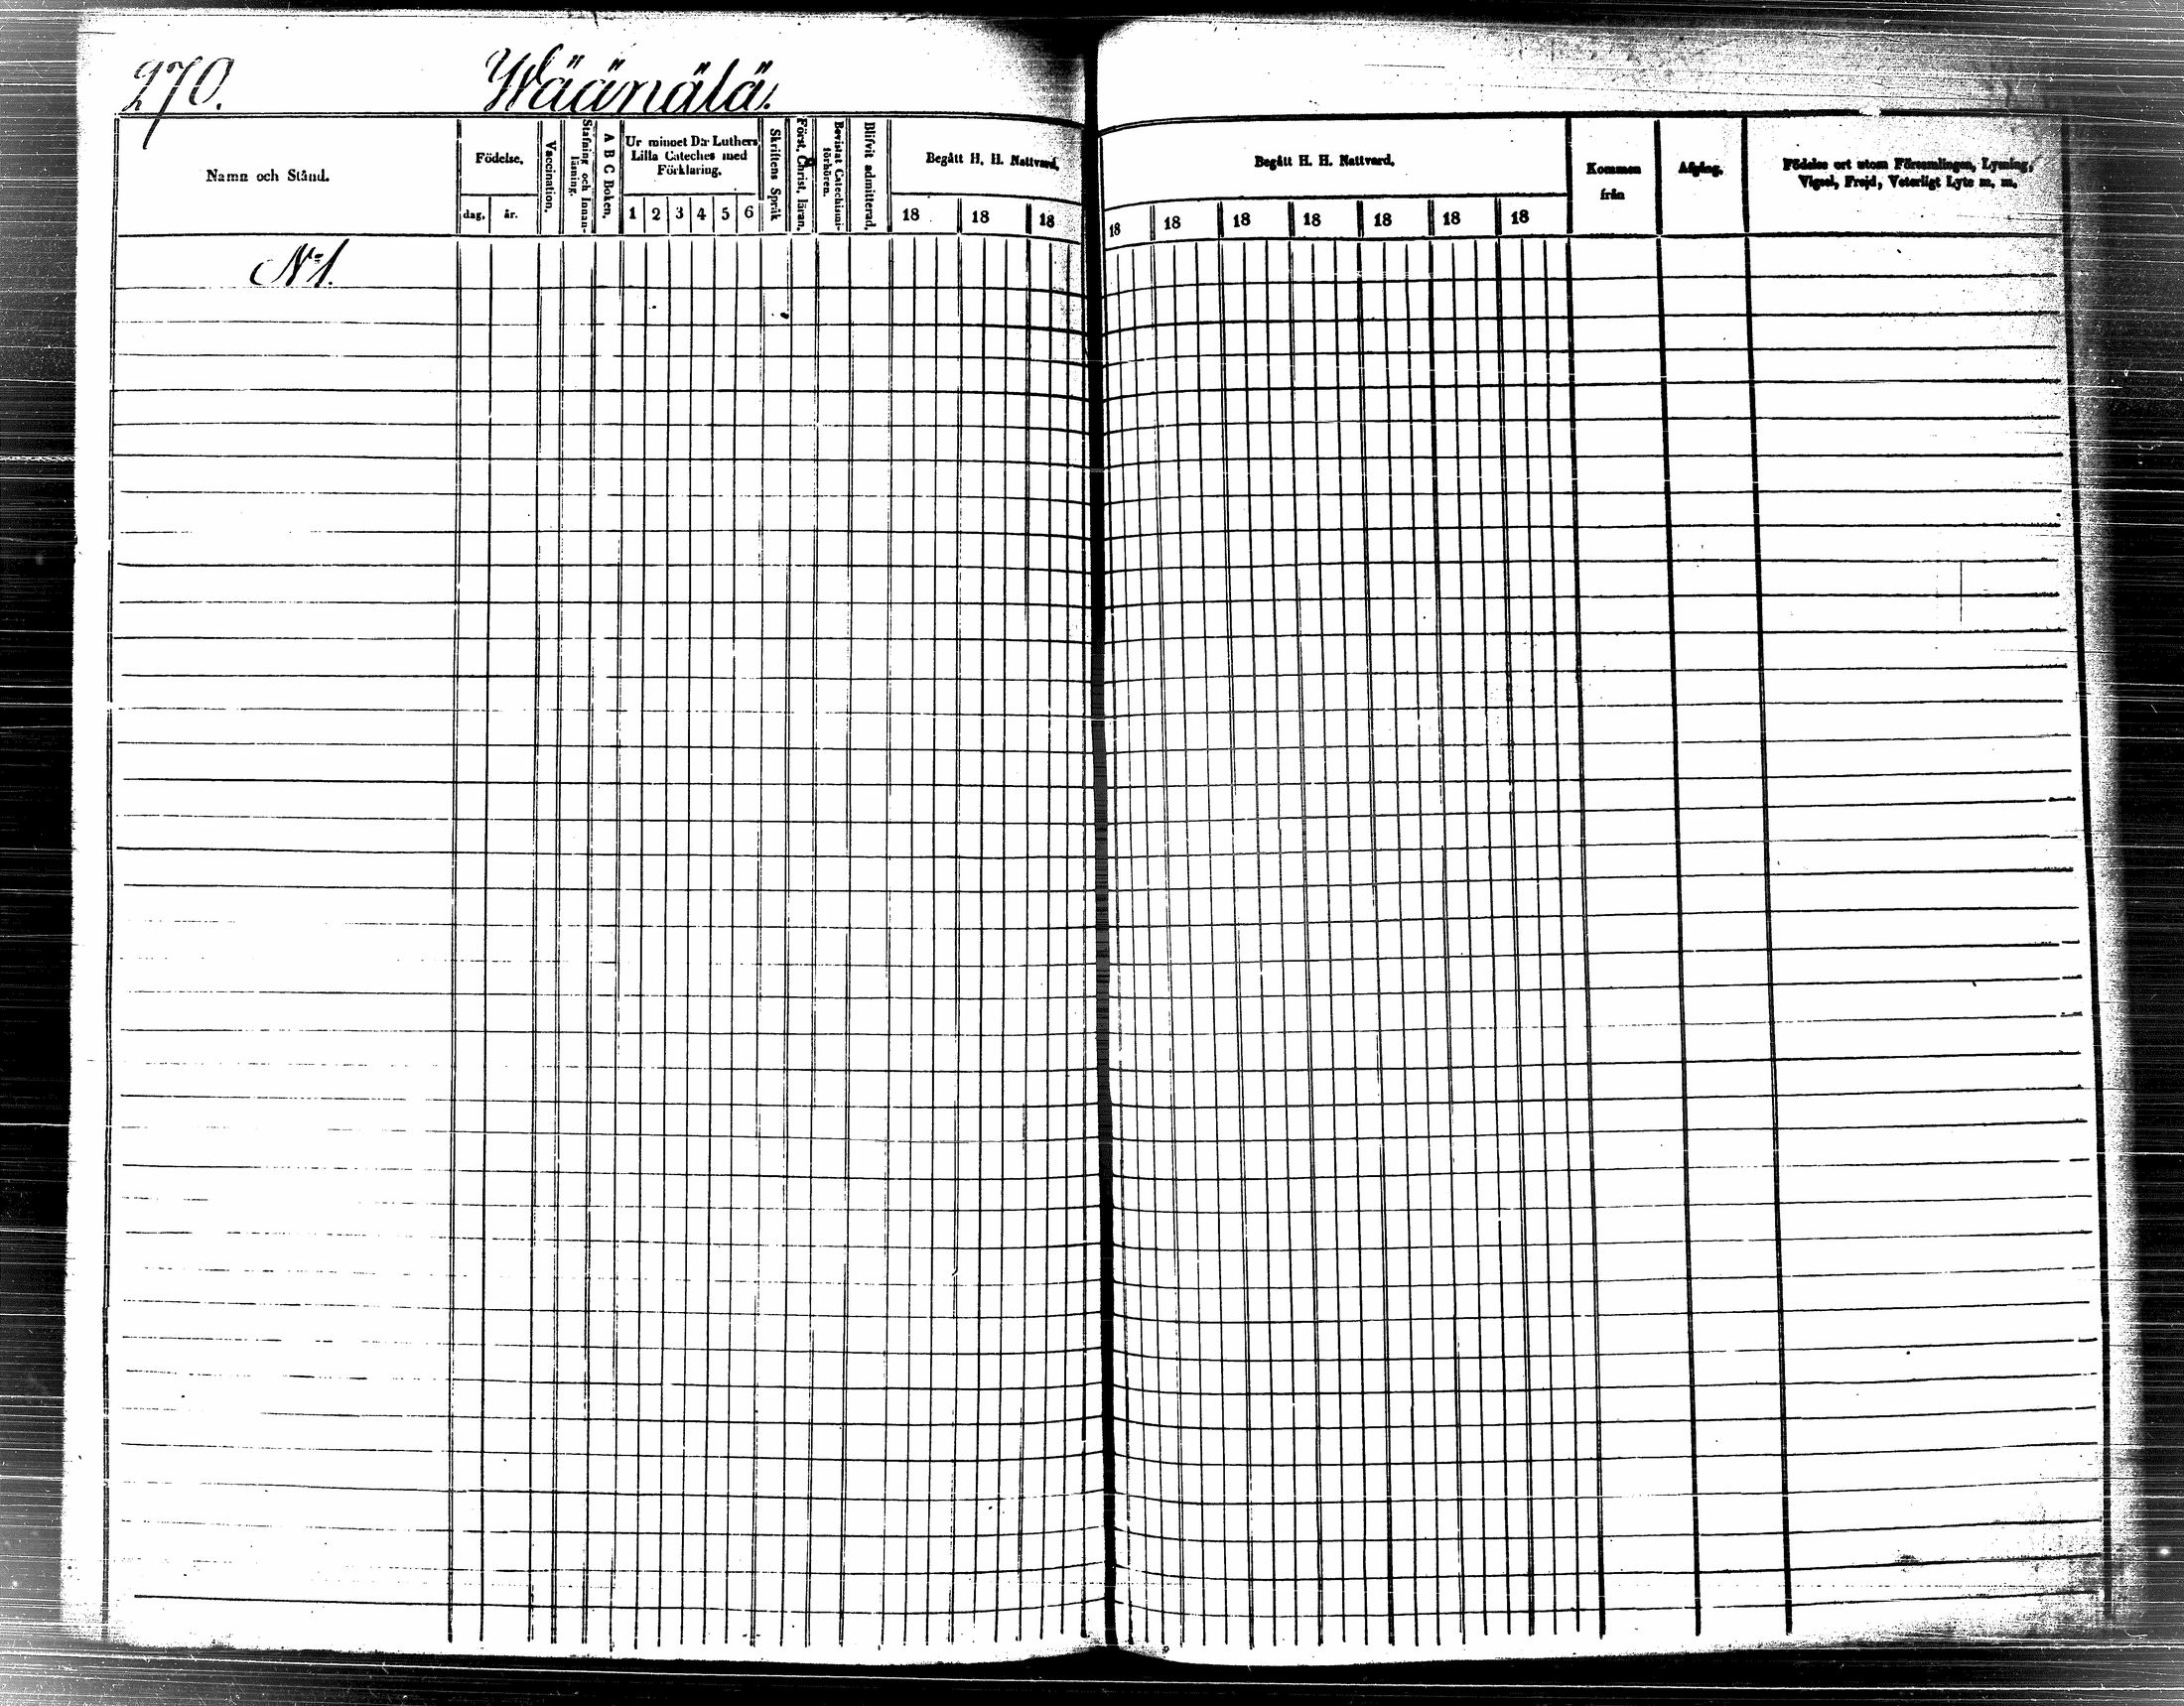 270. Wäänälä.
Namn och Stånd.
Födelse.
dag. år.
Vaccination.
Stafning och Innan-
läsning.
A B C Boken.
Ur minnet D:r Luthers
Lilla Cateches med
Förklaring.
1 2 3 4 5 6
Skriftens Språk
Först. Christ. läran.
Bevistat Catechismi-
förhören.
Blifvit admitterad.
Begått H. H. Nattvard.
18 18 18
Begått H. H. Nattvard.
18 18 18 18 18 18 18
Kommen
från
Afgång.
Födelse ort utom Församlingen, Lysning,
Vigsel, Frejd, Veterligt Lyte m. m.
N:o 1.